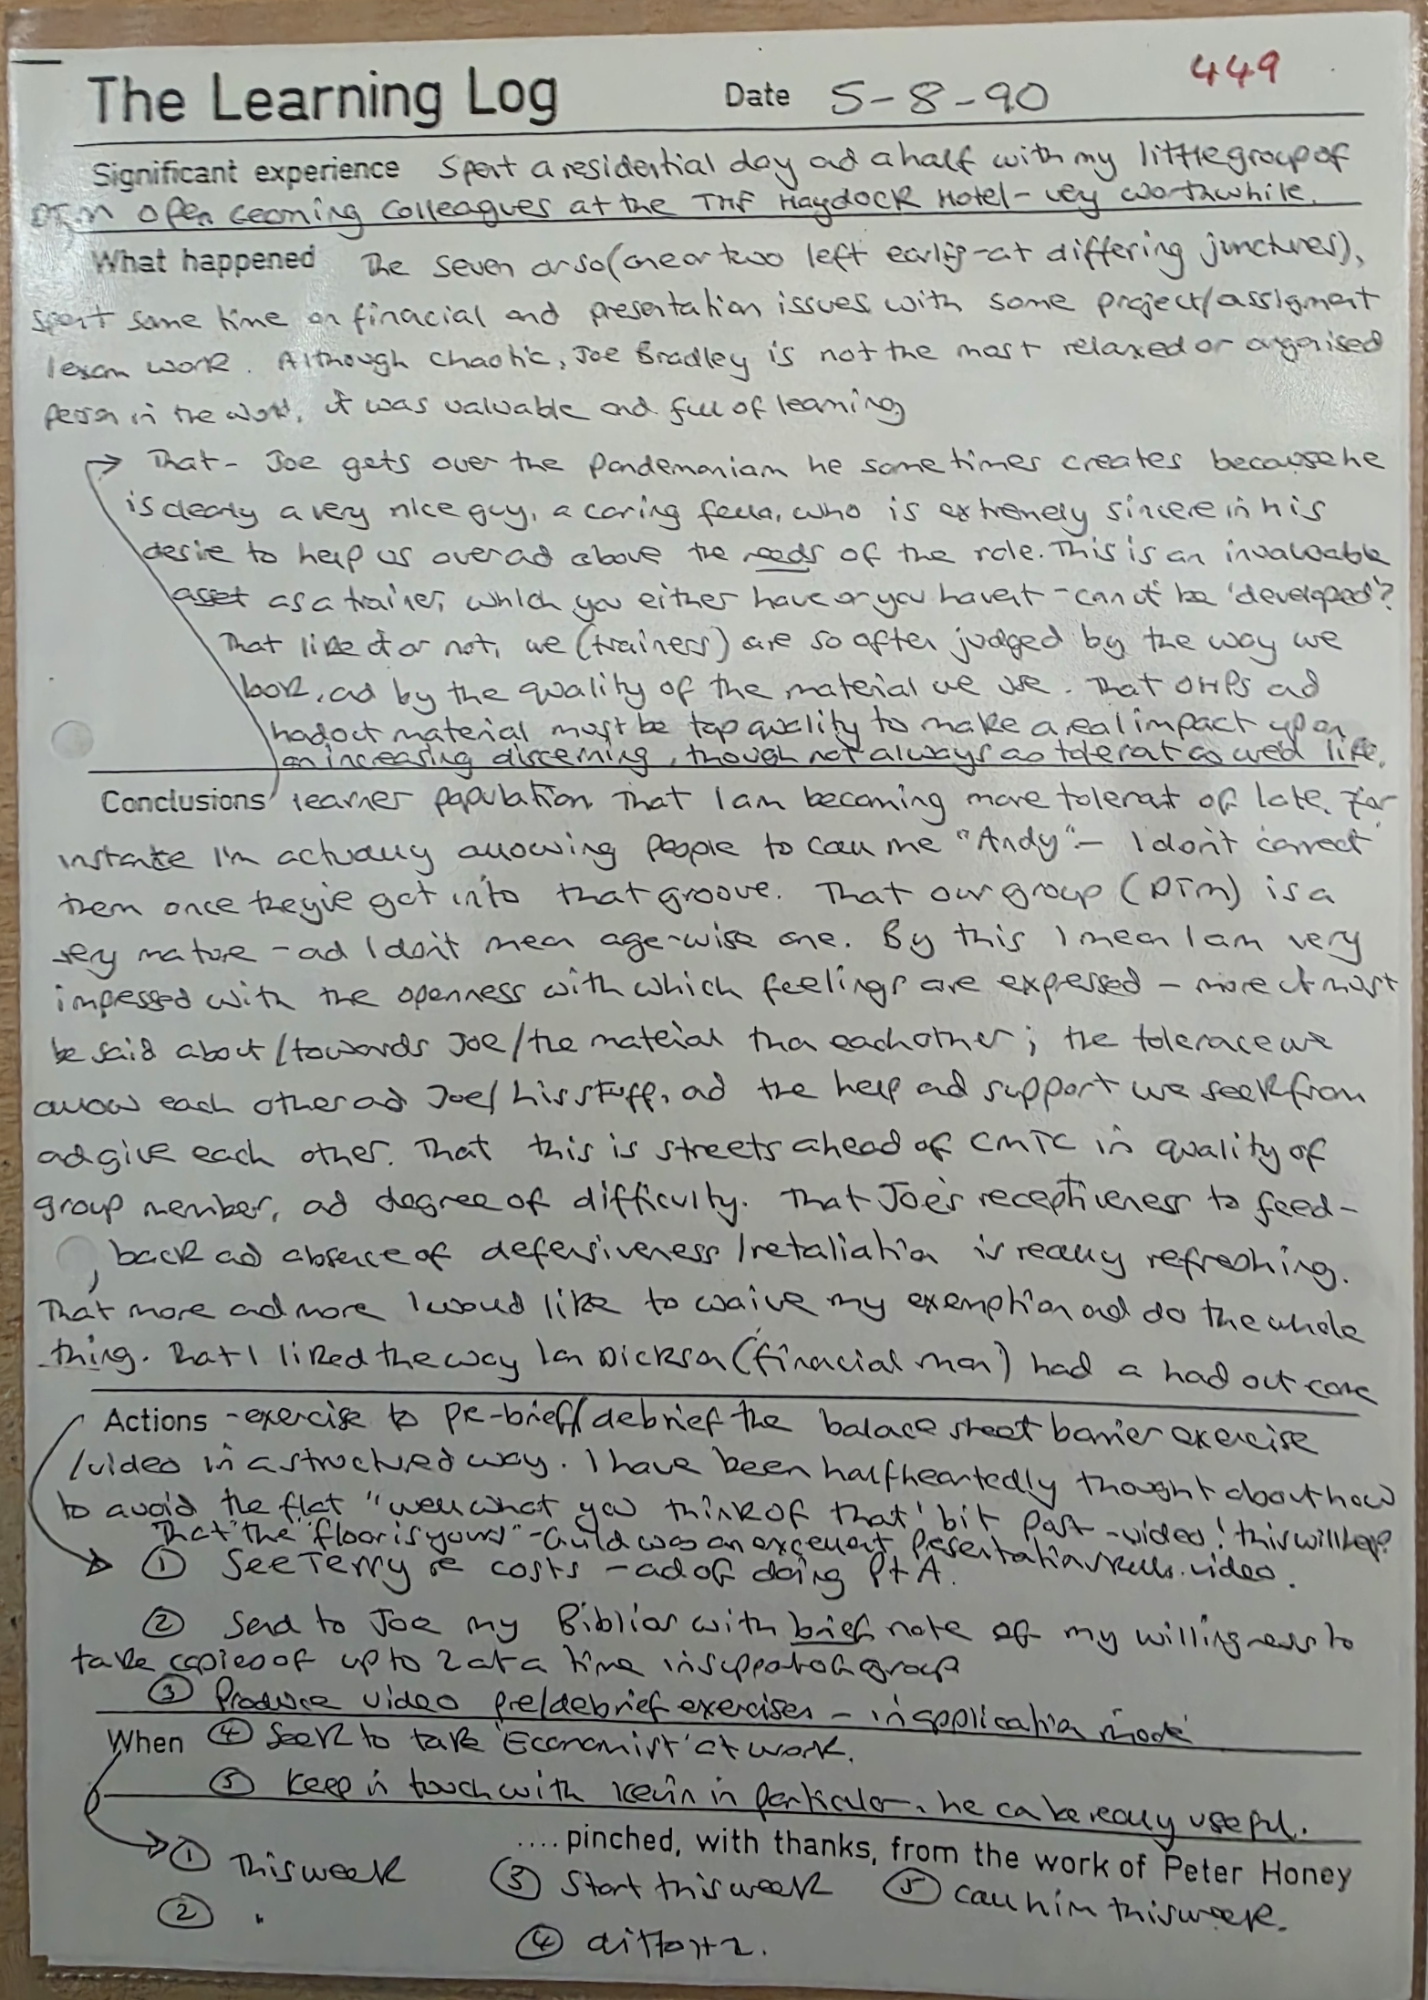 449
The Learning Log Date 5-8-90
Significant experience Spent a residential day ad a half with my little group of
DTM Open Learning Colleagues at the THF Haydock Hotel - very worthwhile.
What happened The seven or so (one or two left early - at differing junctures),
spent some time on finacial and presentation issues with some project/assigment
/exam work. Although chaotic, Joe Bradley is not the most relaxed or organised
person in the world, it was valuable and full of learning
→ That - Joe gets over the pandemoniam he sometimes creates because he
is clearly a very nice guy, a caring fella, who is extremely sincere in his
desire to help us over ad above the needs of the role. This is an invaluable
asset as a trainer, which you either have or you haven't - can it be 'developed'?
That like it or not, we (trainers) are so often judged by the way we
look, ad by the quality of the material we use. That OHPs ad
hadout material must be top quality to make a real impact upon
an increasing discerning, though not always as tolerat as we'd like,
Conclusions learner population. That I am becoming more tolerat of late. For
instance I'm actually allowing people to call me "Andy" - I don't correct
them once they've got into that groove. That our group (DTM) is a
very mature - ad I don't mean age-wise one. By this I mean I am very
impressed with the openness with which feelings are expressed - more it must
be said about/towards Joe/the material tha each other; the tolerace we
allow each other ad Joe/his stuff, ad the help ad support we seek from
ad give each other. That this is streets ahead of CMTC in quality of
group member, ad degree of difficulty. That Joe's receptiveness to feed-
back ad absence of defensiveness/retaliation is really refreshing.
That more ad more I would like to waive my exemption ad do the whole
thing. That I liked the way Ian Dickson (finacial man) had a had out come
Actions - exercise to pre-brief/debrief the balace sheet barrier exercise
/video in a structured way. I have been halfheartedly thought about how
to avoid the flat "well what you think of that" bit post-video! this will help?
That "the "floor is yours" - Guild was an excellent presentation skills video.
① See Terry re costs - ad of doing P+A.
② Send to Joe my Biblios with brief note of my willingness to
take copies of up to 2 at a time in support of group
③ Produce video pre/debrief exercises - in application mode
When ④ Seek to take 'Economist' at work.
⑤ Keep in touch with Kevin in particular, he ca be really useful.
.... pinched, with thanks, from the work of Peter Honey
① This week ③ Start this week ⑤ call him this week.
② "
④ ditto 1+2.